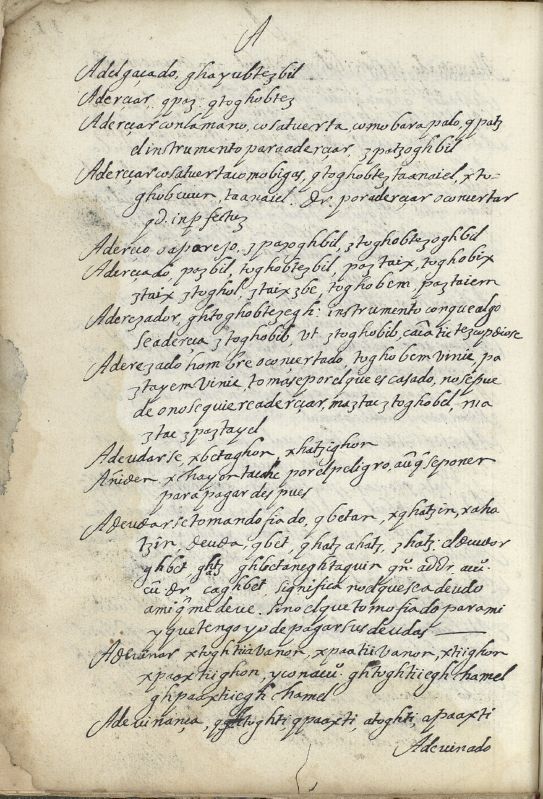 A
Adelgaçado, ghayubtezbil
Aderçar, qpaz. qtoghobtez
Aderçar con la mano, cosa tuerta, como bara palo, q patz
el instrumento para aderçar, zpatzoghbil
Aderçar cosa tuerta como bigas, qtoghobtez taanaiel, xto-
ghobcuun, taanaiel. dr. por aderçar o convertar
qd. inpfectez
Aderico o aparejo, zpazoghbil, ztoghobtezoghbil
Aderçado, pazbil, toghobtezbil, paztaix, toghobix
ztaix ztoghol, ztaixzbe, toghobem, paztaiem
Aderezador, ghtoghobtezegh: instrumento con que algo
se aderça ztoghobib, vt ztoghobib,
Aderezado hombre o convertado, toghobem vinic pa
ztayem vinic, to mase por el que es casado, no se pue
de o no se quiere aderçar, maztac ztoghobel, ma
ztac zpaztayel
Adeudarse, xbetaghon, xhatzighon
xchay on por el peligro, aūq se poner
para pagar despues
Adeudarse tomando fiado, qbetan, xqhatzin, xaha
tzin deuda, qbet, qhatz ahatz, zhatz. el deudor
ghbet ghatz ghbectaneghtaquin qn. addr. au.
cū. dr caghbet significa no el que sea deudo
a mi q me deue. sino el que tomo fiado para mi
y que tengo yo de pagar sus deudas
Adeuinar xtoghtiavanon, xpaatiivanon, xtiighon
xpaoxtiighon, y con acu. ghtoghtiiegh chamel
ghpaoxtiiegh chamel
Adeuinança, qtoghti qpaaxti, atoghti, apaaxti
Adeuinado